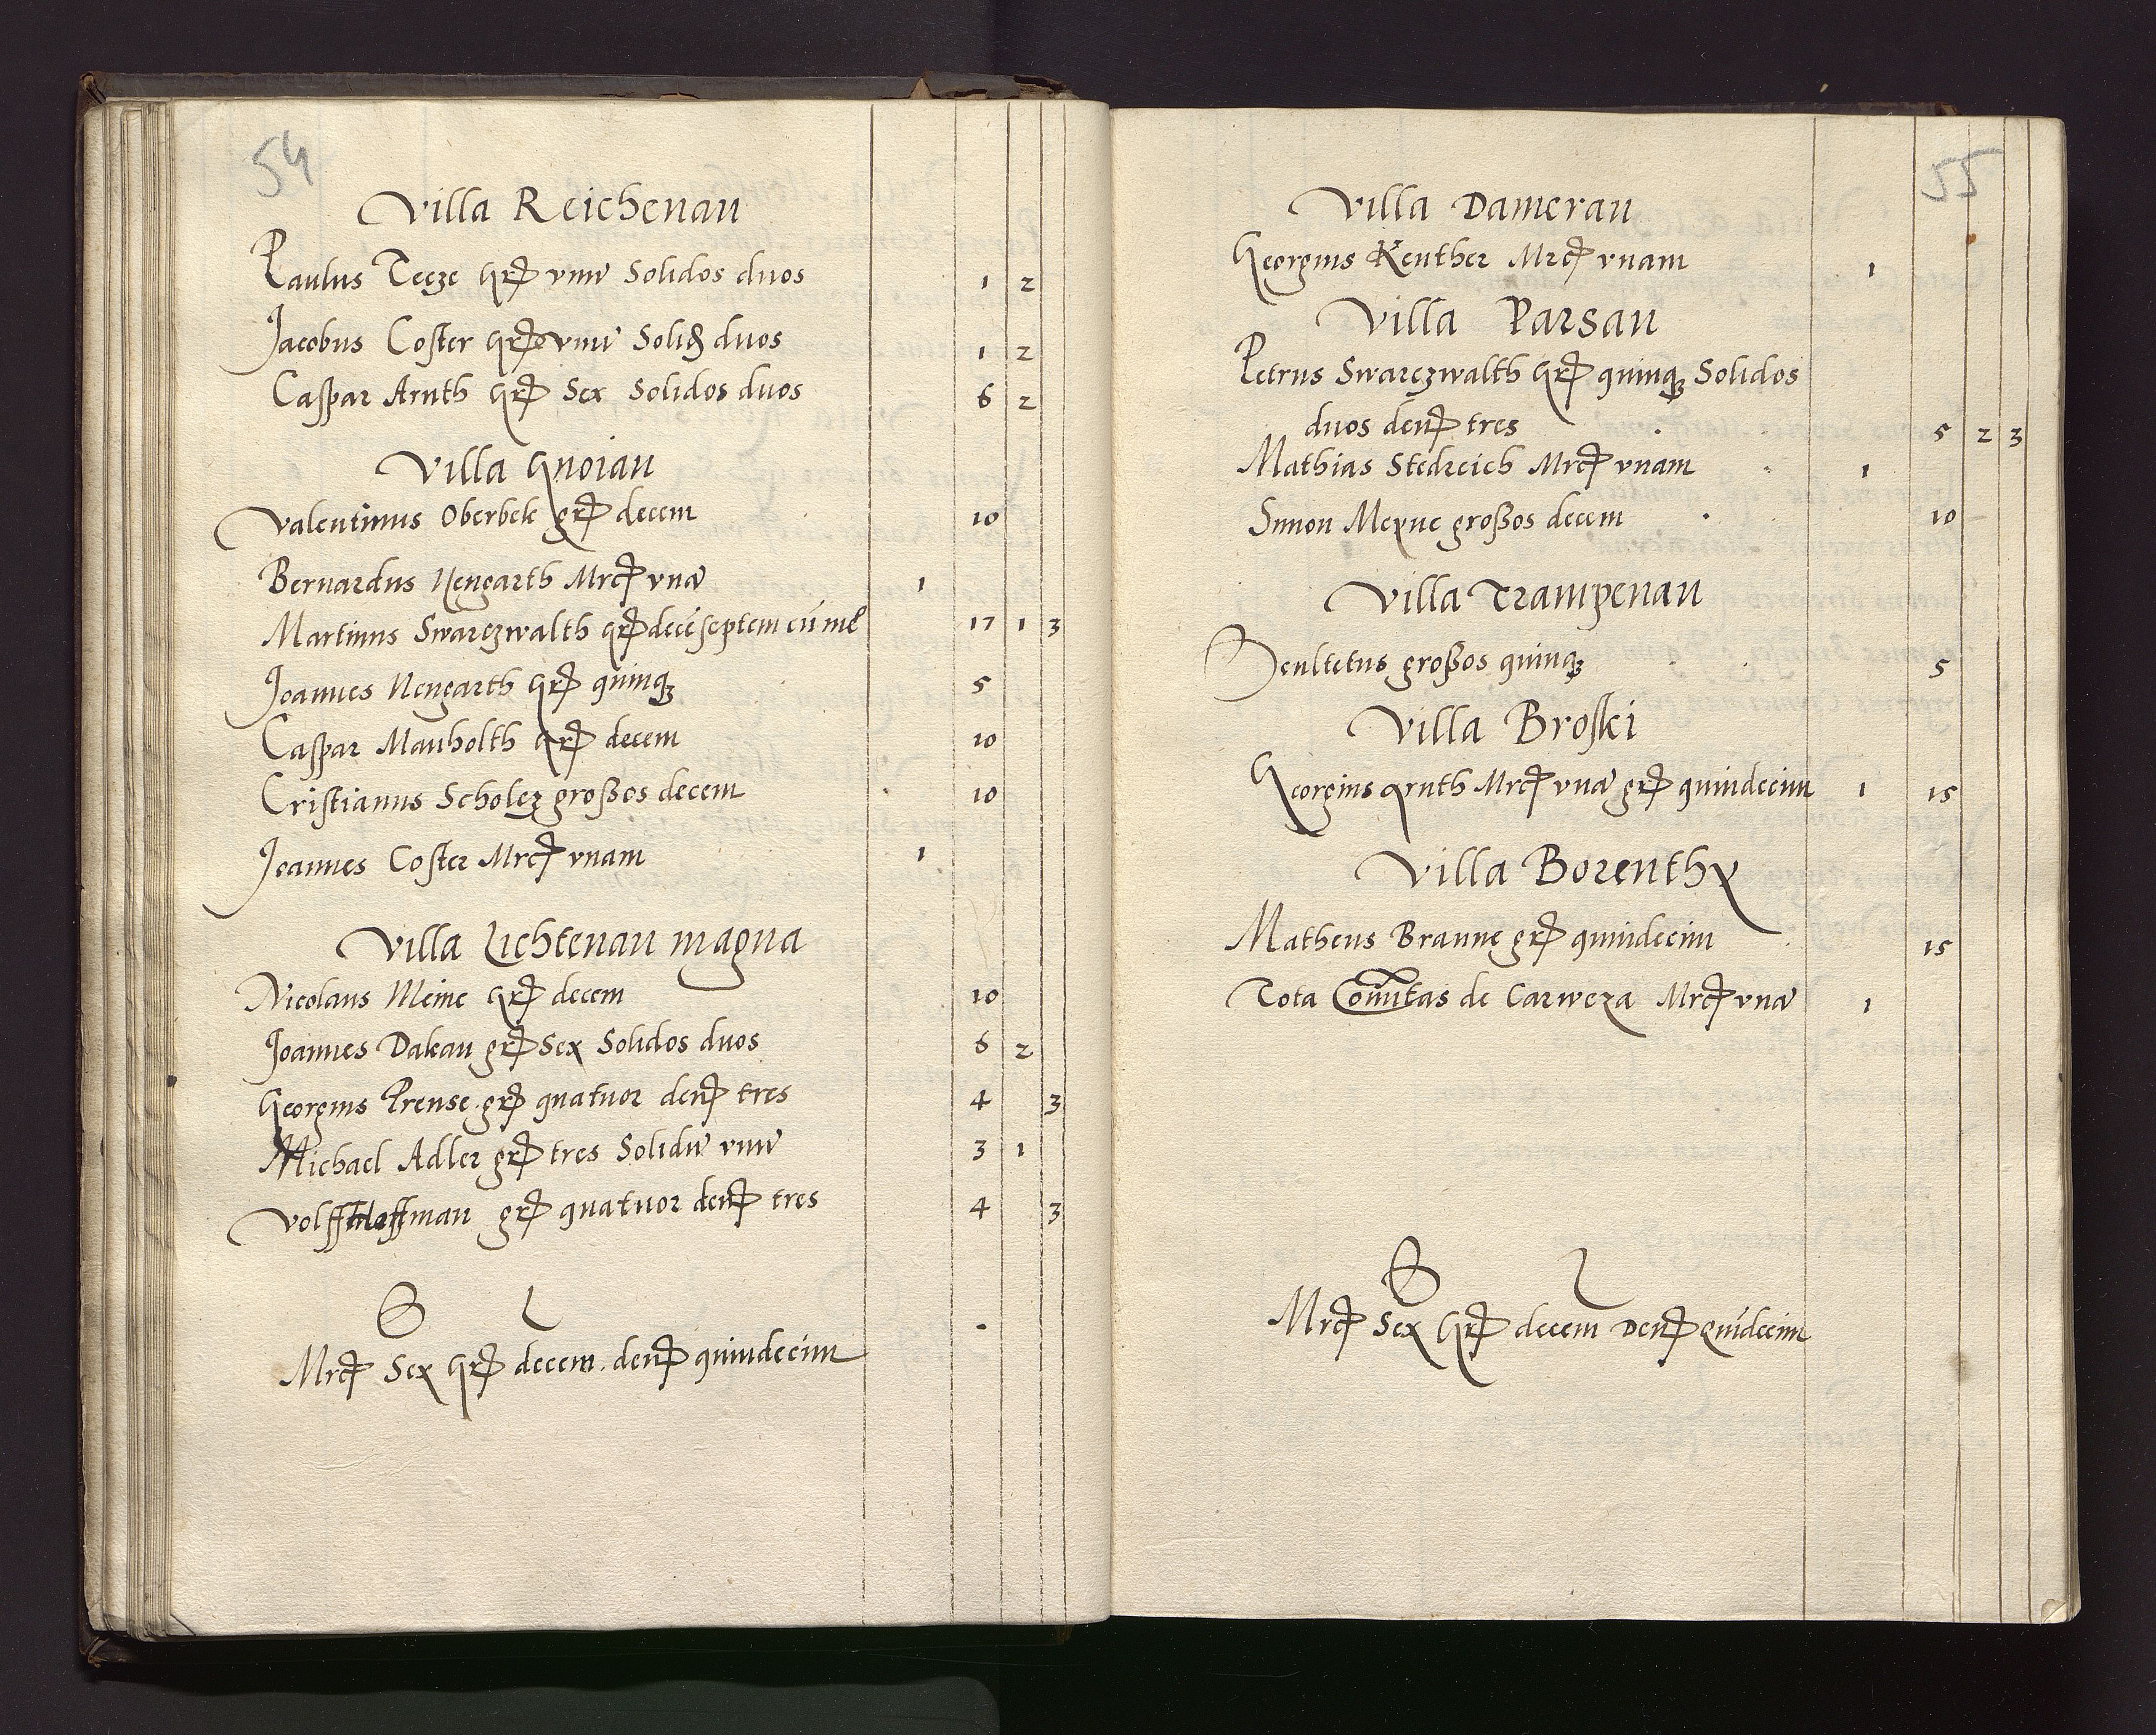 54
Villa Reichenau
Paulus Tecze grꝭ vnũ Solidos duos 1 2
Jacobus Coster grꝭ vnũ Soliꝭ duos 1 2
Caspar Arnth grꝭ Sex Solidos duos 6 2
Villa Gnoiau
Valentinus Oberbek grꝭ decem 10
Bernardus Nengarth Mrcꝭ vnã 1
Martinus Swarczwalth grꝭ decẽ septem cũ mẽ 17 1 3
Joannes Nengarth grꝭ quinqꝫ 5
Caspar Manholth grꝭ decem 10
Cristianus Scholcz großos decem 10
Joannes Coster Mrcꝭ vnam 1
Villa Lichtenau magna
Nicolaus Meine grꝭ decem 10
Joannes Dakau grꝭ Sex Solidos duos 6 2
Georgius Prense grꝭ quatuor denꝭ tres 4 3
Michael Adler grꝭ tres Solidũ vnũ 3 1
Volff Hoffman grꝭ quatuor denꝭ tres 4 3
S
Mrcꝭ Sex grꝭ decem denꝭ quindecim
55
Villa Damerau
Georgius Keuther Mrcꝭ vnam 1
Villa Parsau
Petrus Swarczwalth grꝭ quinqꝫ Solidos
duos denꝭ tres 5 2 3
Mathias Stedreich Mrcꝭ vnam 1
Simon Meyne großos decem 10
Villa Trampenau
Scultetus großos quinqꝫ 5
Villa Broski
Georgius Arnth Mrcꝭ vnã grꝭ quindecim 1 15
Villa Borenthy
Matheus Braune grꝭ quindecim 15
Tota Com̃tas de Carweza Mrcꝭ vnã 1
S
Mrcꝭ Sex Grꝭ decem Denꝭ Quĩdecim